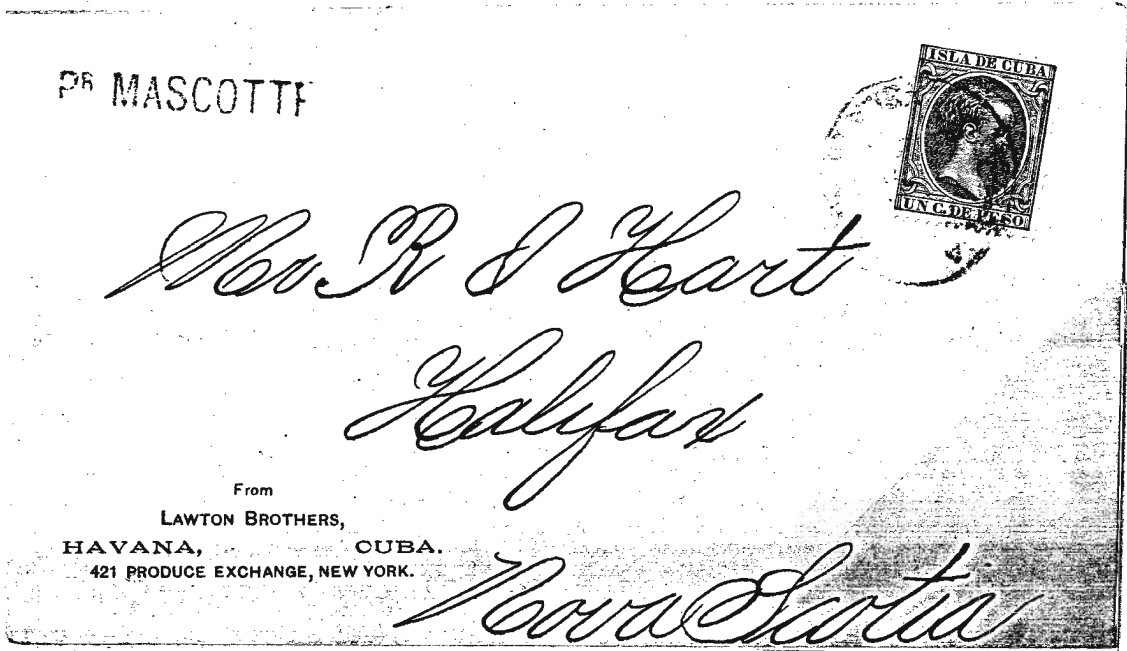 PR MASCOTTE
ISLA DE CUBA
UN C. DE PESO
Mr R I Hart
Halifax
Nova Scotia
From
LAWTON BROTHERS,
HAVANA, CUBA.
421 PRODUCE EXCHANGE, NEW YORK.